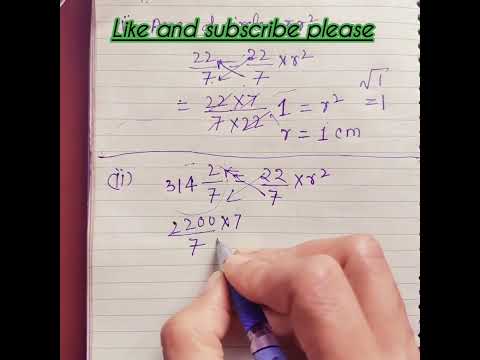 Like and subscribe please
22/7 = 22/7 × r²
= 22 × 7 / 7 × 22  1 = r²
√1 = 1
r = 1 cm
(ii) 314 2/7 = 22/7 × r²
2200 × 7 / 7